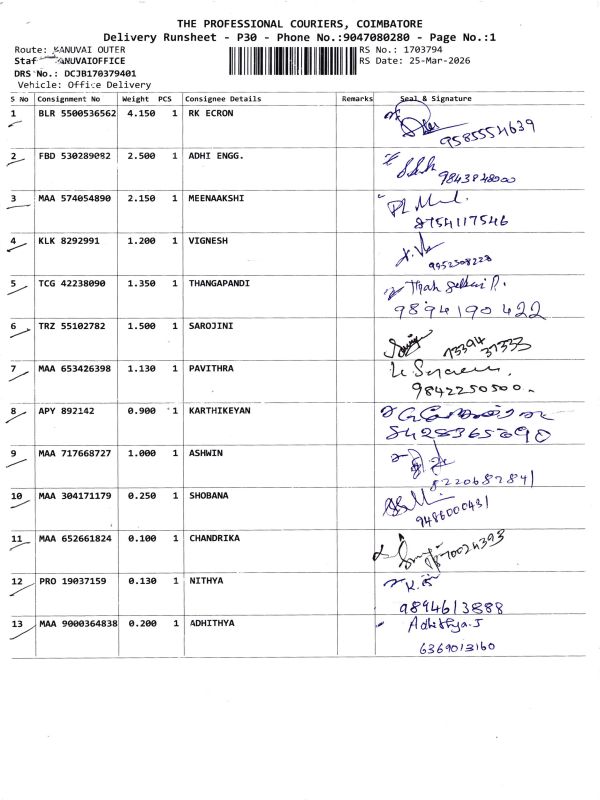 THE PROFESSIONAL COURIERS, COIMBATORE
Delivery Runsheet - P30 - Phone No.:9047080280 - Page No.:1
Route: KANUVAI OUTER RS No.: 1703794
Staf KANUVAIOFFICE RS Date: 25-Mar-2026
DRS No.: DCJB170379401
Vehicle: Office Delivery
S No Consignment No Weight PCS Consignee Details Remarks Seal & Signature
1 BLR 5500536562 4.150 1 RK ECRON
9585554639
2 FBD 530289082 2.500 1 ADHI ENGG.
9843848000
3 MAA 574054890 2.150 1 MEENAAKSHI
8754117546
4 KLK 8292991 1.200 1 VIGNESH
9952308228
5 TCG 42238090 1.350 1 THANGAPANDI
9894190422
6 TRZ 55102782 1.500 1 SAROJINI
73394 37333
7 MAA 653426398 1.130 1 PAVITHRA
9842250500
8 APY 892142 0.900 1 KARTHIKEYAN
9 MAA 717668727 1.000 1 ASHWIN
10 MAA 304171179 0.250 1 SHOBANA
9486000431
11 MAA 652661824 0.100 1 CHANDRIKA
12 PRO 19037159 0.130 1 NITHYA
9894613888
13 MAA 9000364838 0.200 1 ADHITHYA Adhithya.J
6369013160